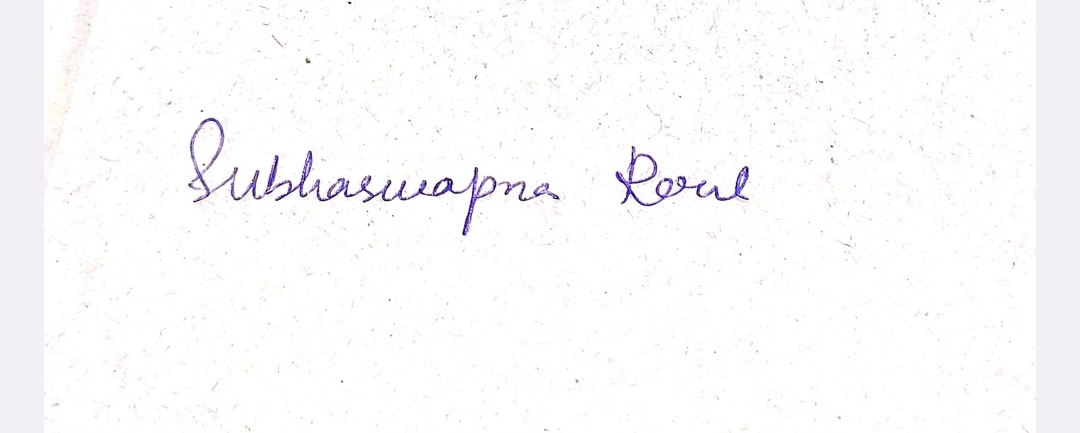 Subhaswapna Rout